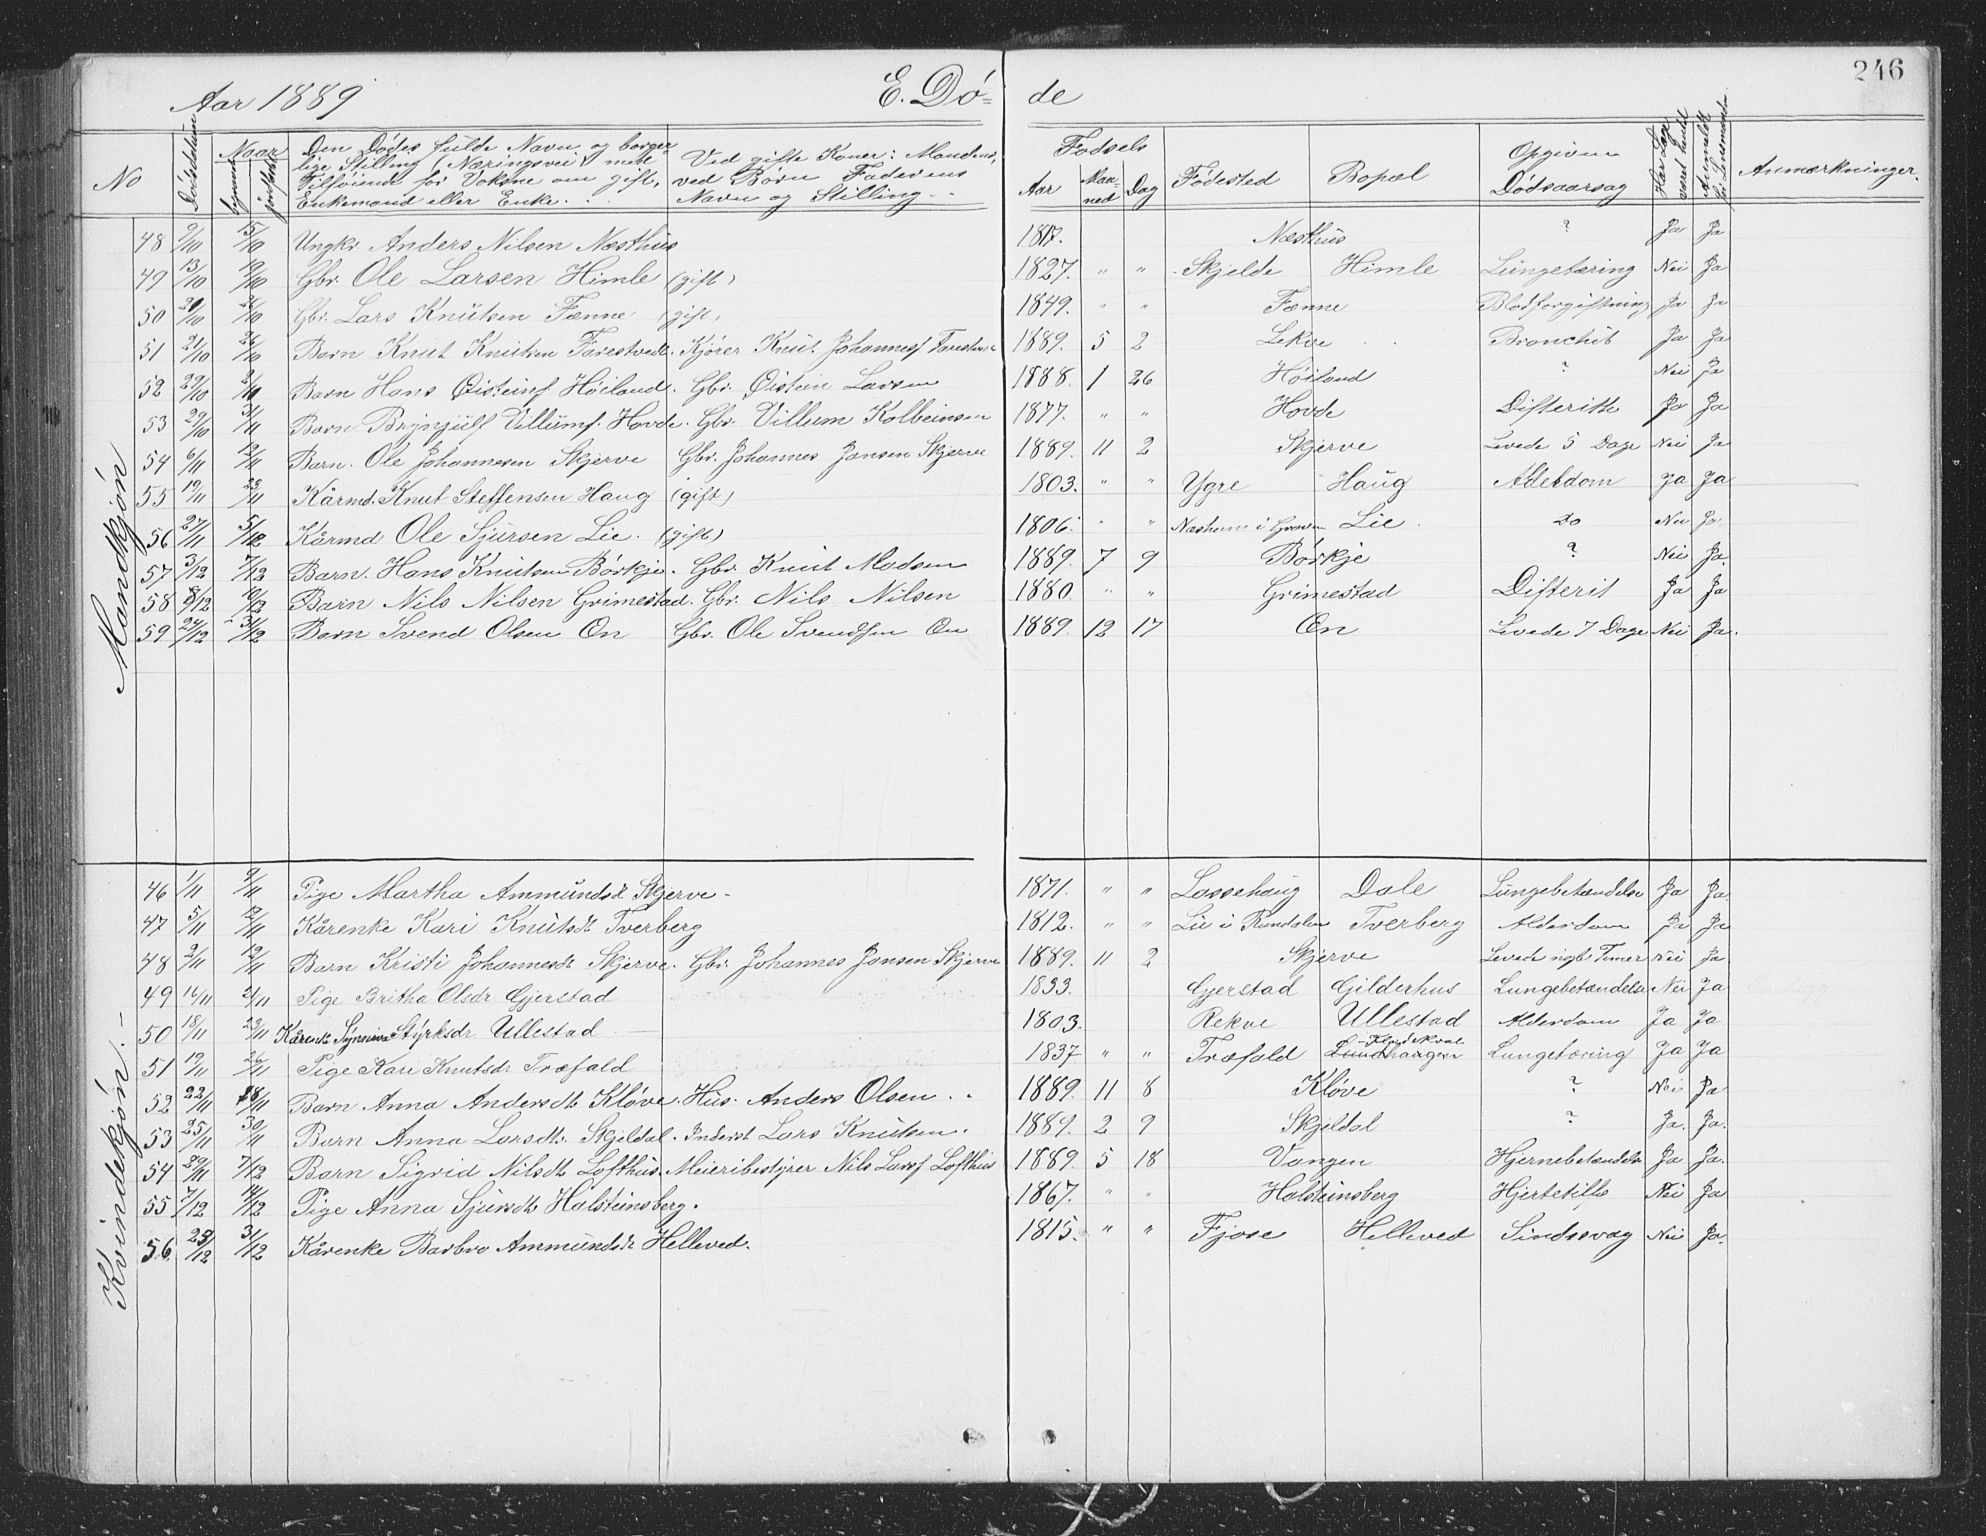 246
Aar 1889 E. Dø= de
No Dødsdatum Naar Den Dødes fulde Navn og borger- Ved gifte Koner: Mandens, Fødsels Fødested Bopæl Opgiven Har Læge Anmeldt Anmærkninger.
begravet jordfæstet lige Stilling (Næringsvei) med ved Børn Faderens Aar Maa- Dag Dødsaarsag været brudt
Tilføiende for Voksne om gift, Navn og Stilling.. ned
Enkemand eller Enke. . .
Mandkjøn
48 9/10 15/10 Ungkr. Anders Nilsen Næsthus 1817. Næsthus ? Ja Ja
49 13/10 19/10 Gbr. Ole Larsen Himle (gift) 1827. " " Skjelde Himle Lungetæring Nei Ja
50 20/10 26/10 Gbr. Lars Knutsen Fenne (gift) 1849. " " Fenne Blodforgiftning Ja Ja
51 21/10 26/10 Barn Knut Knutsen Farestvedt. Kjører Knut Johannesf Farestve 1889. 5 2 Lekve Bronchit Ja Ja
52 29/10 2/10 Barn Hans Øisteinf Høiland. Gbr. Øistein Larsen 1888. 1 26 Høiland ? Nei Ja
53 29/10 3/11 Barn Brynjulf Villumf. Hovde. Gbr. Villum Kolbeinsen 1877. " " Hovde Difterith Ja Ja
54 6/11 12/11 Barn. Ole Johannesen Skjerve Gbr. Johannes Jansen Skjerve 1889. 11 2 Skjerve Levede 5 Dage Nei Ja
55 19/11 23/11 Kårmd. Knut Steffensen Haug (gift) 1803. " " Ygre Haug Alderdom Ja Ja
56 27/11 5/12 Kårmd Ole Sjursen Lie. (gift) 1806. " " Næsheim i Graven Lie. do Nei Ja.
57 3/12 7/12 Barn. Hans Knutsen Børkje. Gbr. Knut Madsen 1889. 7 9 Børkje ? Nei Ja.
58 8/12 10/12 Barn Nils Nilsen Grimestad. Gbr. Nils Nilsen 1880. " " Grimestad Difterit Ja Ja
59 24/12 31/12 Barn Svend Olsen Øn Gbr. Ole Svendsen Øn 1889. 12 17 Øn Levede 7 Dage Nei Ja.
Kvindekjøn.-
46 1/11 9/11 Pige Martha Ammundsdt Skjerve- 1871. " " Lassehaug Dale Lungebetændelse Ja Ja.
47 5/11 12/11 Kårenke Kari Knutsdt Tverberg 1812. " " Lie i Rundalen Tverberg Alderdom Ja Ja
48 2/11 12/11 Barn Kristi Johannesdt Skjerve. Gbr. Johannes Jansen Skjerve 1889. 11 2 Skjerve Levede nogle Timer Nei Ja
49 16/11 21/11 Pige Britha Olsdr Gjerstad 1833. Gjerstad Gilderhus Lungebetændelse Nei Ja
50 18/11 23/11 Kårenke Synneva Styrksdr Ullestad 1803. Rekve Ullestad Alderdom Ja Ja
51 19/11 26/11 Pige Kari Knutsdr Træfald 1837 " " Træfald Lundhaugen Lungetæring Ja Ja
52 22/11 28/11 Barn Anna Andersdt Kløve. Hus. Anders Olsen. . 1889. 11 8 Kløve ? Nei Ja
53 25/11 30/11 Barn Anna Larsdt. Skjeldal. Inderst Lars Knutsen. 1889. 2 9 Skjeldal ? Ja. Ja.
54 29/11 7/12 Barn Sigrid Nilsdt Lofthus. Meieribestyrer Nils Larsf Lofthus 1889. 5 18 Vangen Hjernebetændelse Ja Ja.
55 7/12 14/12 Pige Anna Sjursdt Halsteinsberg. 1867. " " Halsteinsberg Hjertetilf. Nei Ja
56. 23/12 31/12 Kårenke Barbro Ammundsdt Helleved. 1815. " " Fjose Helleved Sindssvag Nei Ja.